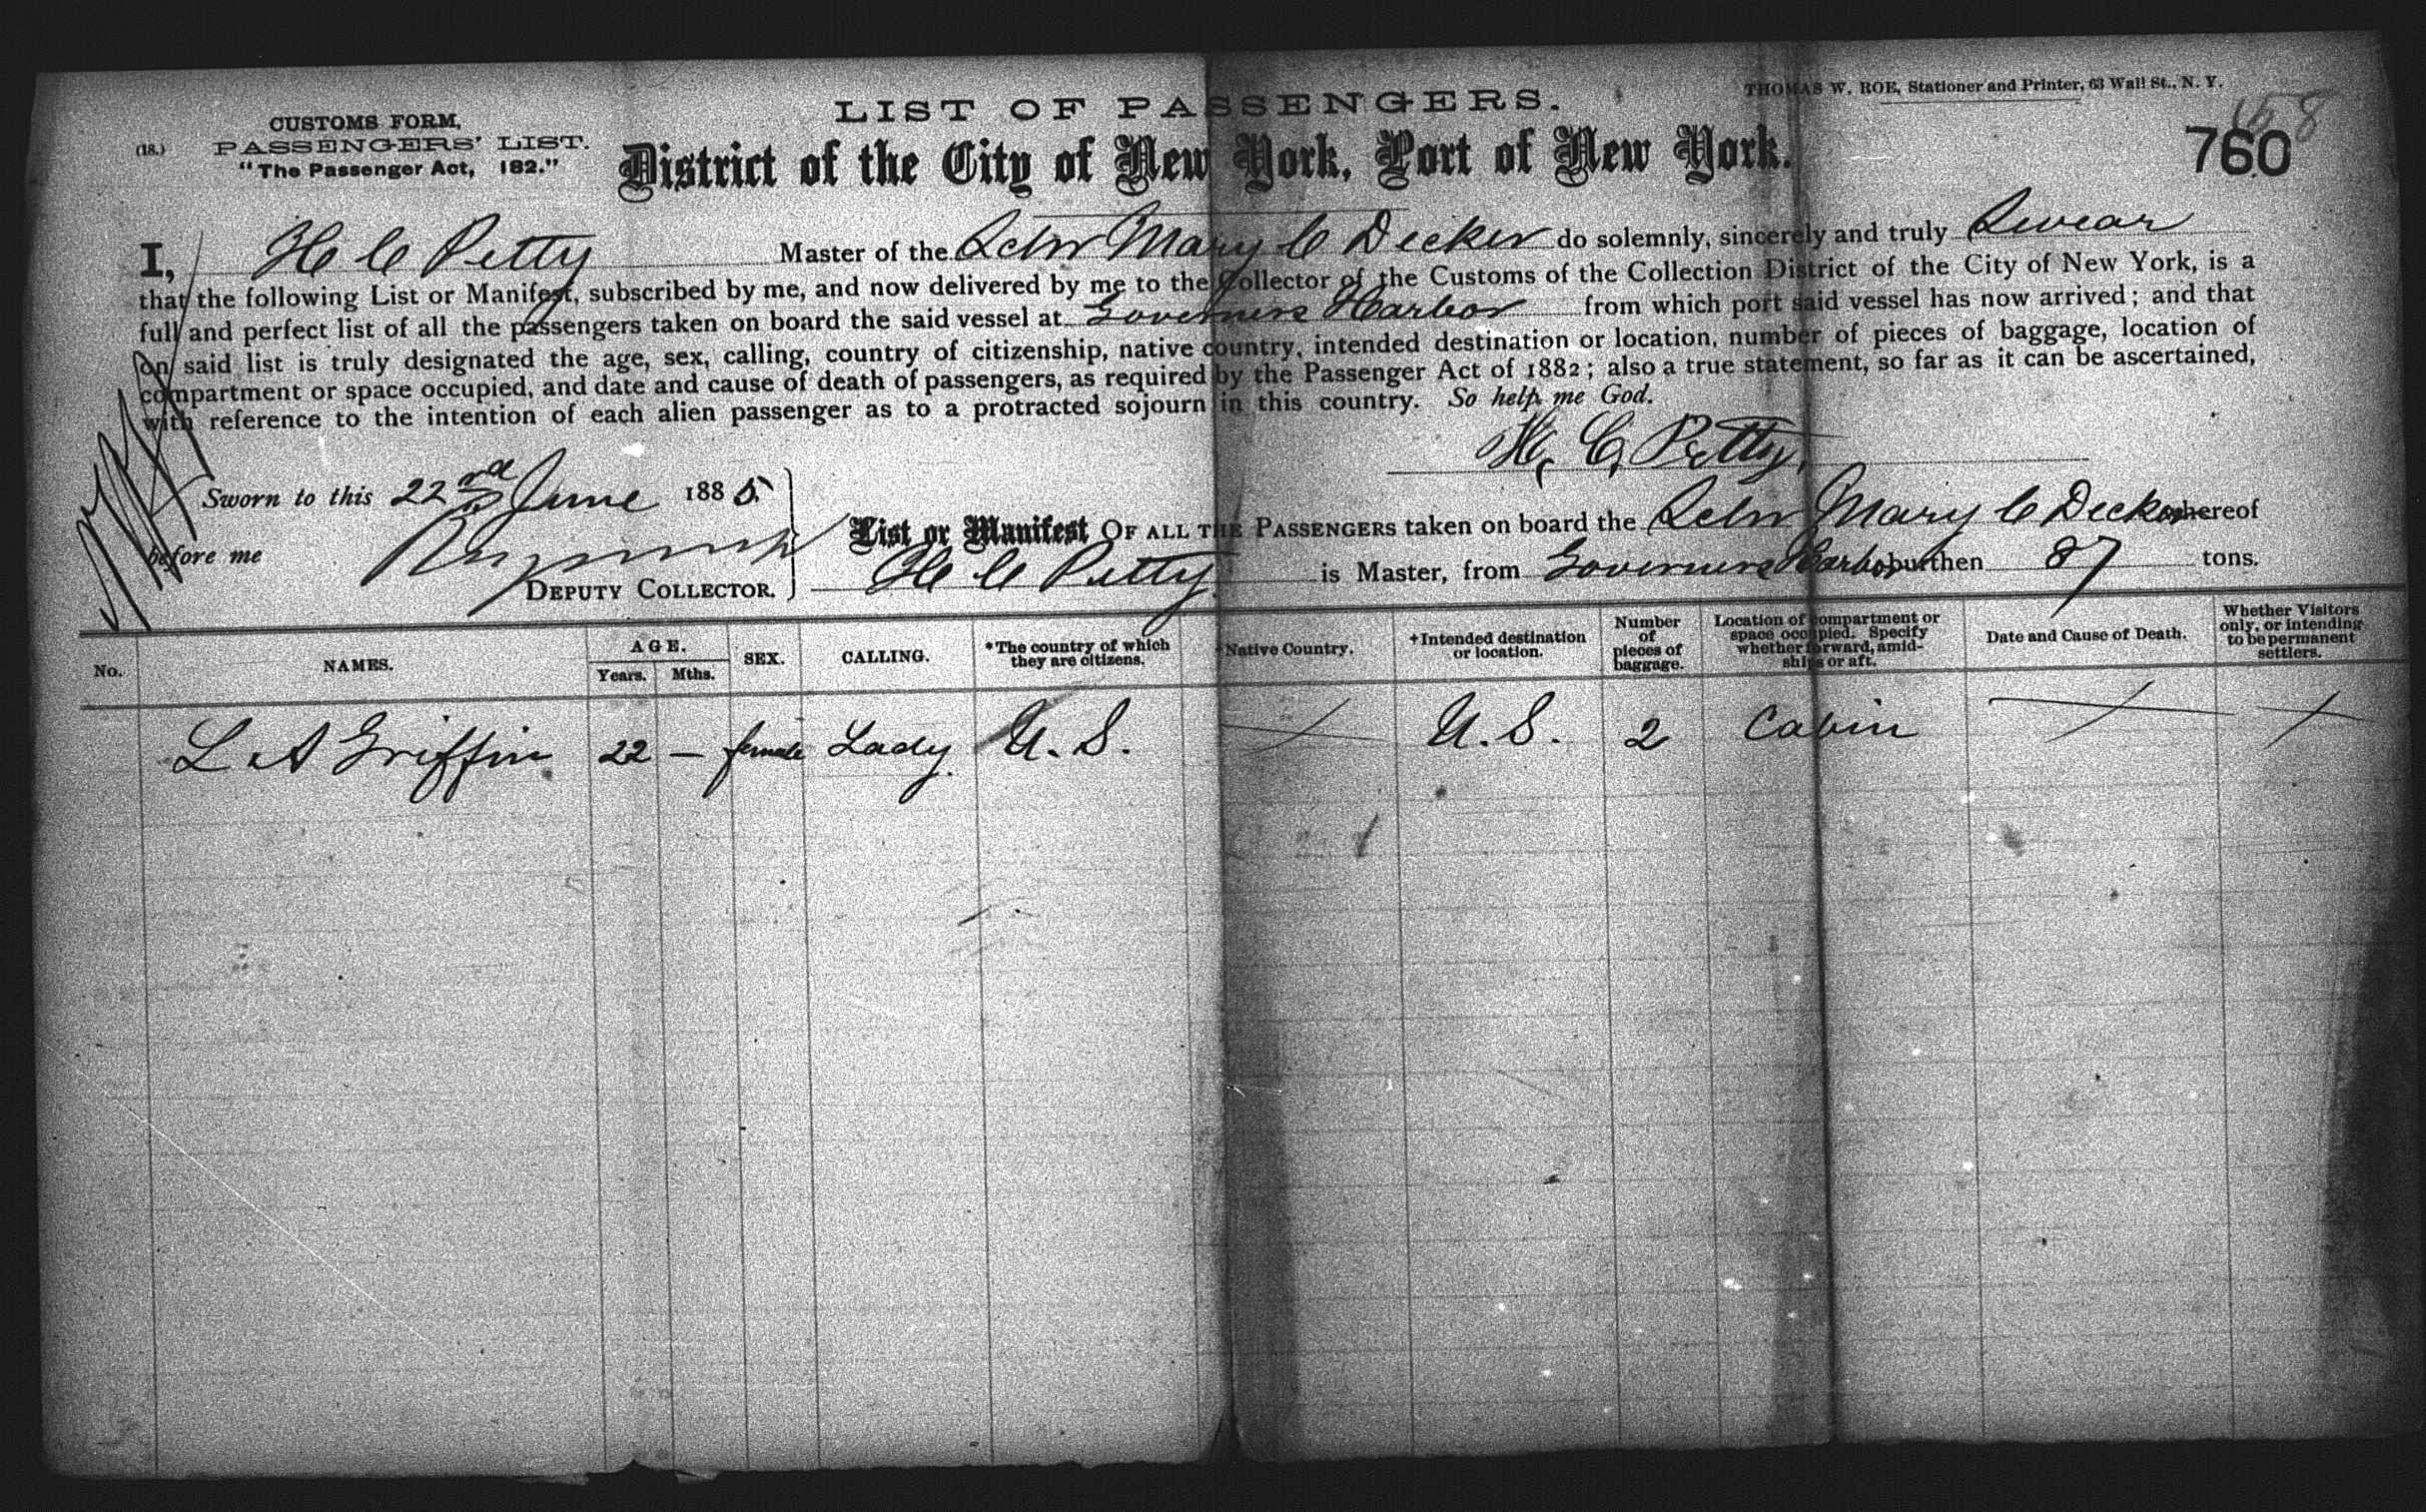 LIST OF PASSENGERS.
THOMAS W. ROE, Stationer and Printer, 63 Wall St., N. Y.
CUSTOMS FORM,
(18.) PASSENGERS' LIST.
"The Passenger Act, 182."
District of the City of New York, Port of New York.
158
760
I, H C Petty Master of the Schr Mary C Decker do solemnly, sincerely and truly Swear
that the following List or Manifest, subscribed by me, and now delivered by me to the Collector of the Customs of the Collection District of the City of New York, is a
full and perfect list of all the passengers taken on board the said vessel at Governers Harbor from which port said vessel has now arrived; and that
on said list is truly designated the age, sex, calling, country of citizenship, native country, intended destination or location, number of pieces of baggage, location of
compartment or space occupied, and date and cause of death of passengers, as required by the Passenger Act of 1882; also a true statement, so far as it can be ascertained,
with reference to the intention of each alien passenger as to a protracted sojourn in this country. So help me God.
H. C. Petty.
Sworn to this 22nd June 1885
before me
DEPUTY COLLECTOR.
List or Manifest OF ALL THE PASSENGERS taken on board the Schr Mary C Decker whereof
H C Petty is Master, from Governers Harbor burthen 87 tons.
No. NAMES. AGE. Years. Mths. SEX. CALLING. *The country of which they are citizens. *Native Country. +Intended destination or location. Number of pieces of baggage. Location of compartment or space occupied. Specify whether forward, amidships or aft. Date and Cause of Death. Whether Visitors only, or intending to be permanent settlers.
L A Griffin 22 — female Lady. U. S. U. S. 2 Cabin